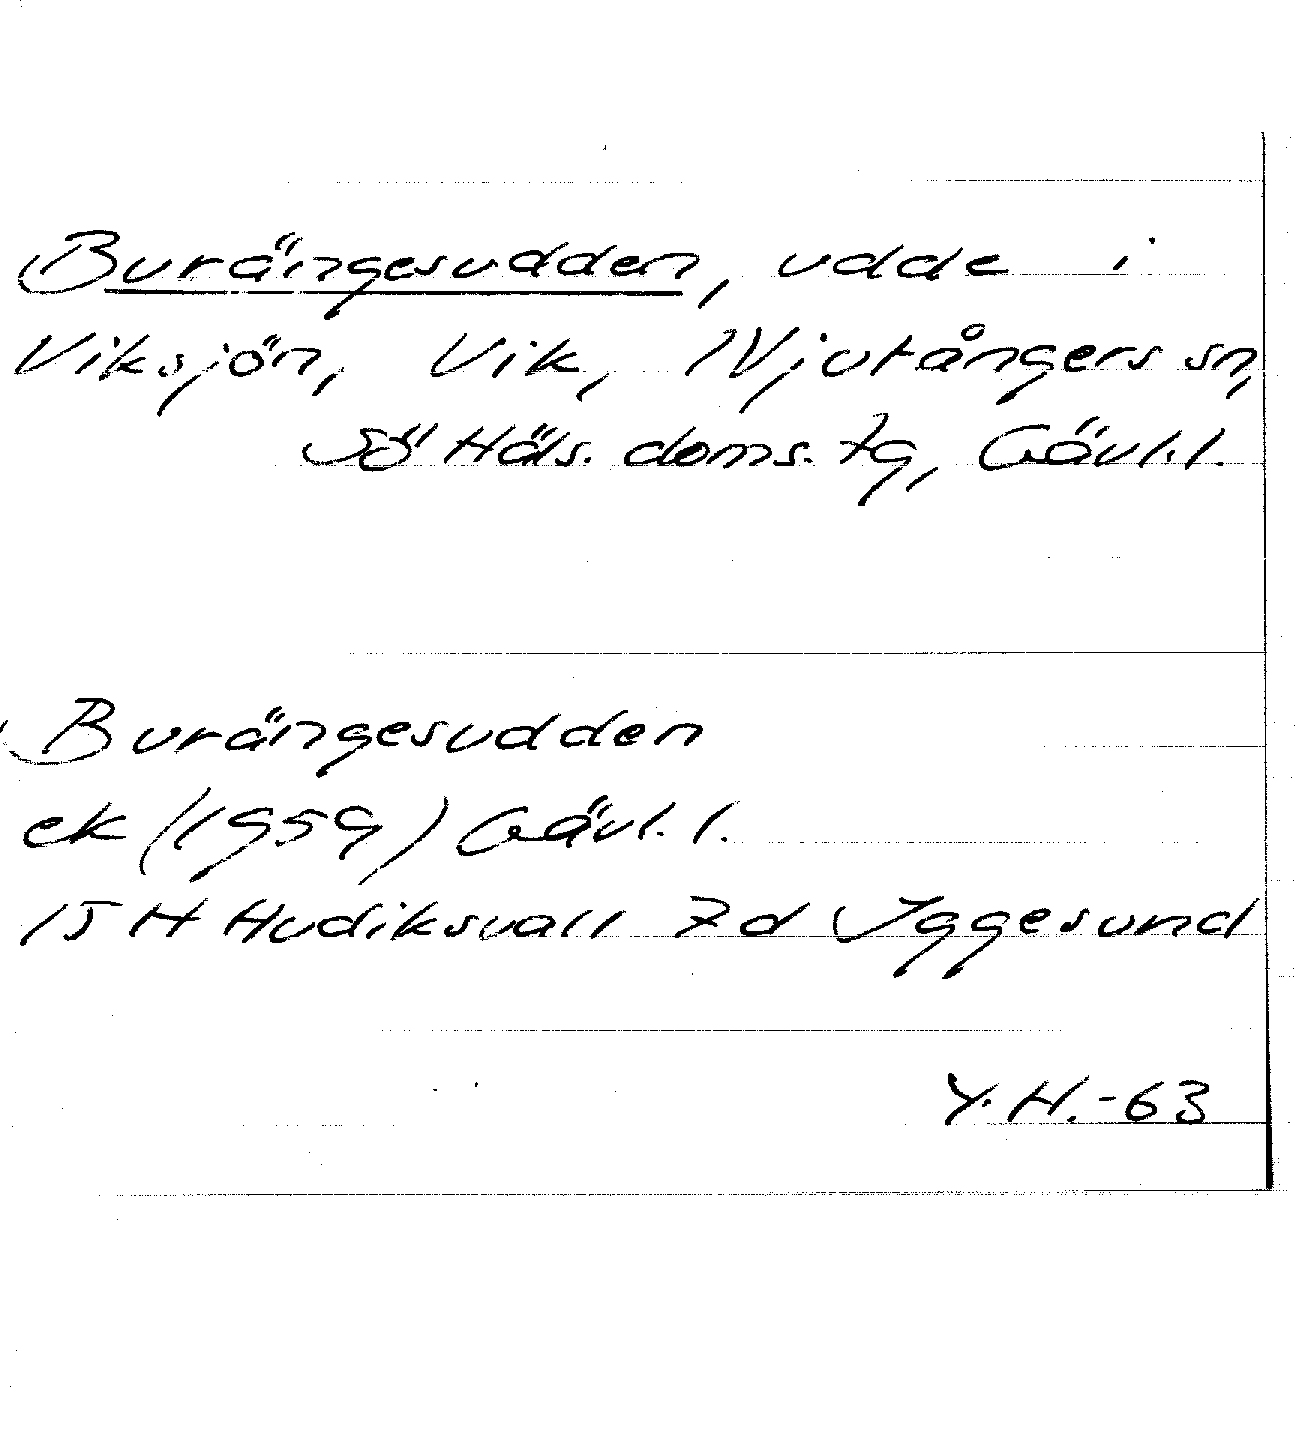 Burängesudden, udde i
Viksjön, Vik, Njutångers sn,
Sö Häls. doms. tg, Gävl.l.
Burängesudden
ek (1959) Gävl. l.
15 H Hudiksvall 7 d Iggesund
Y. H. -63